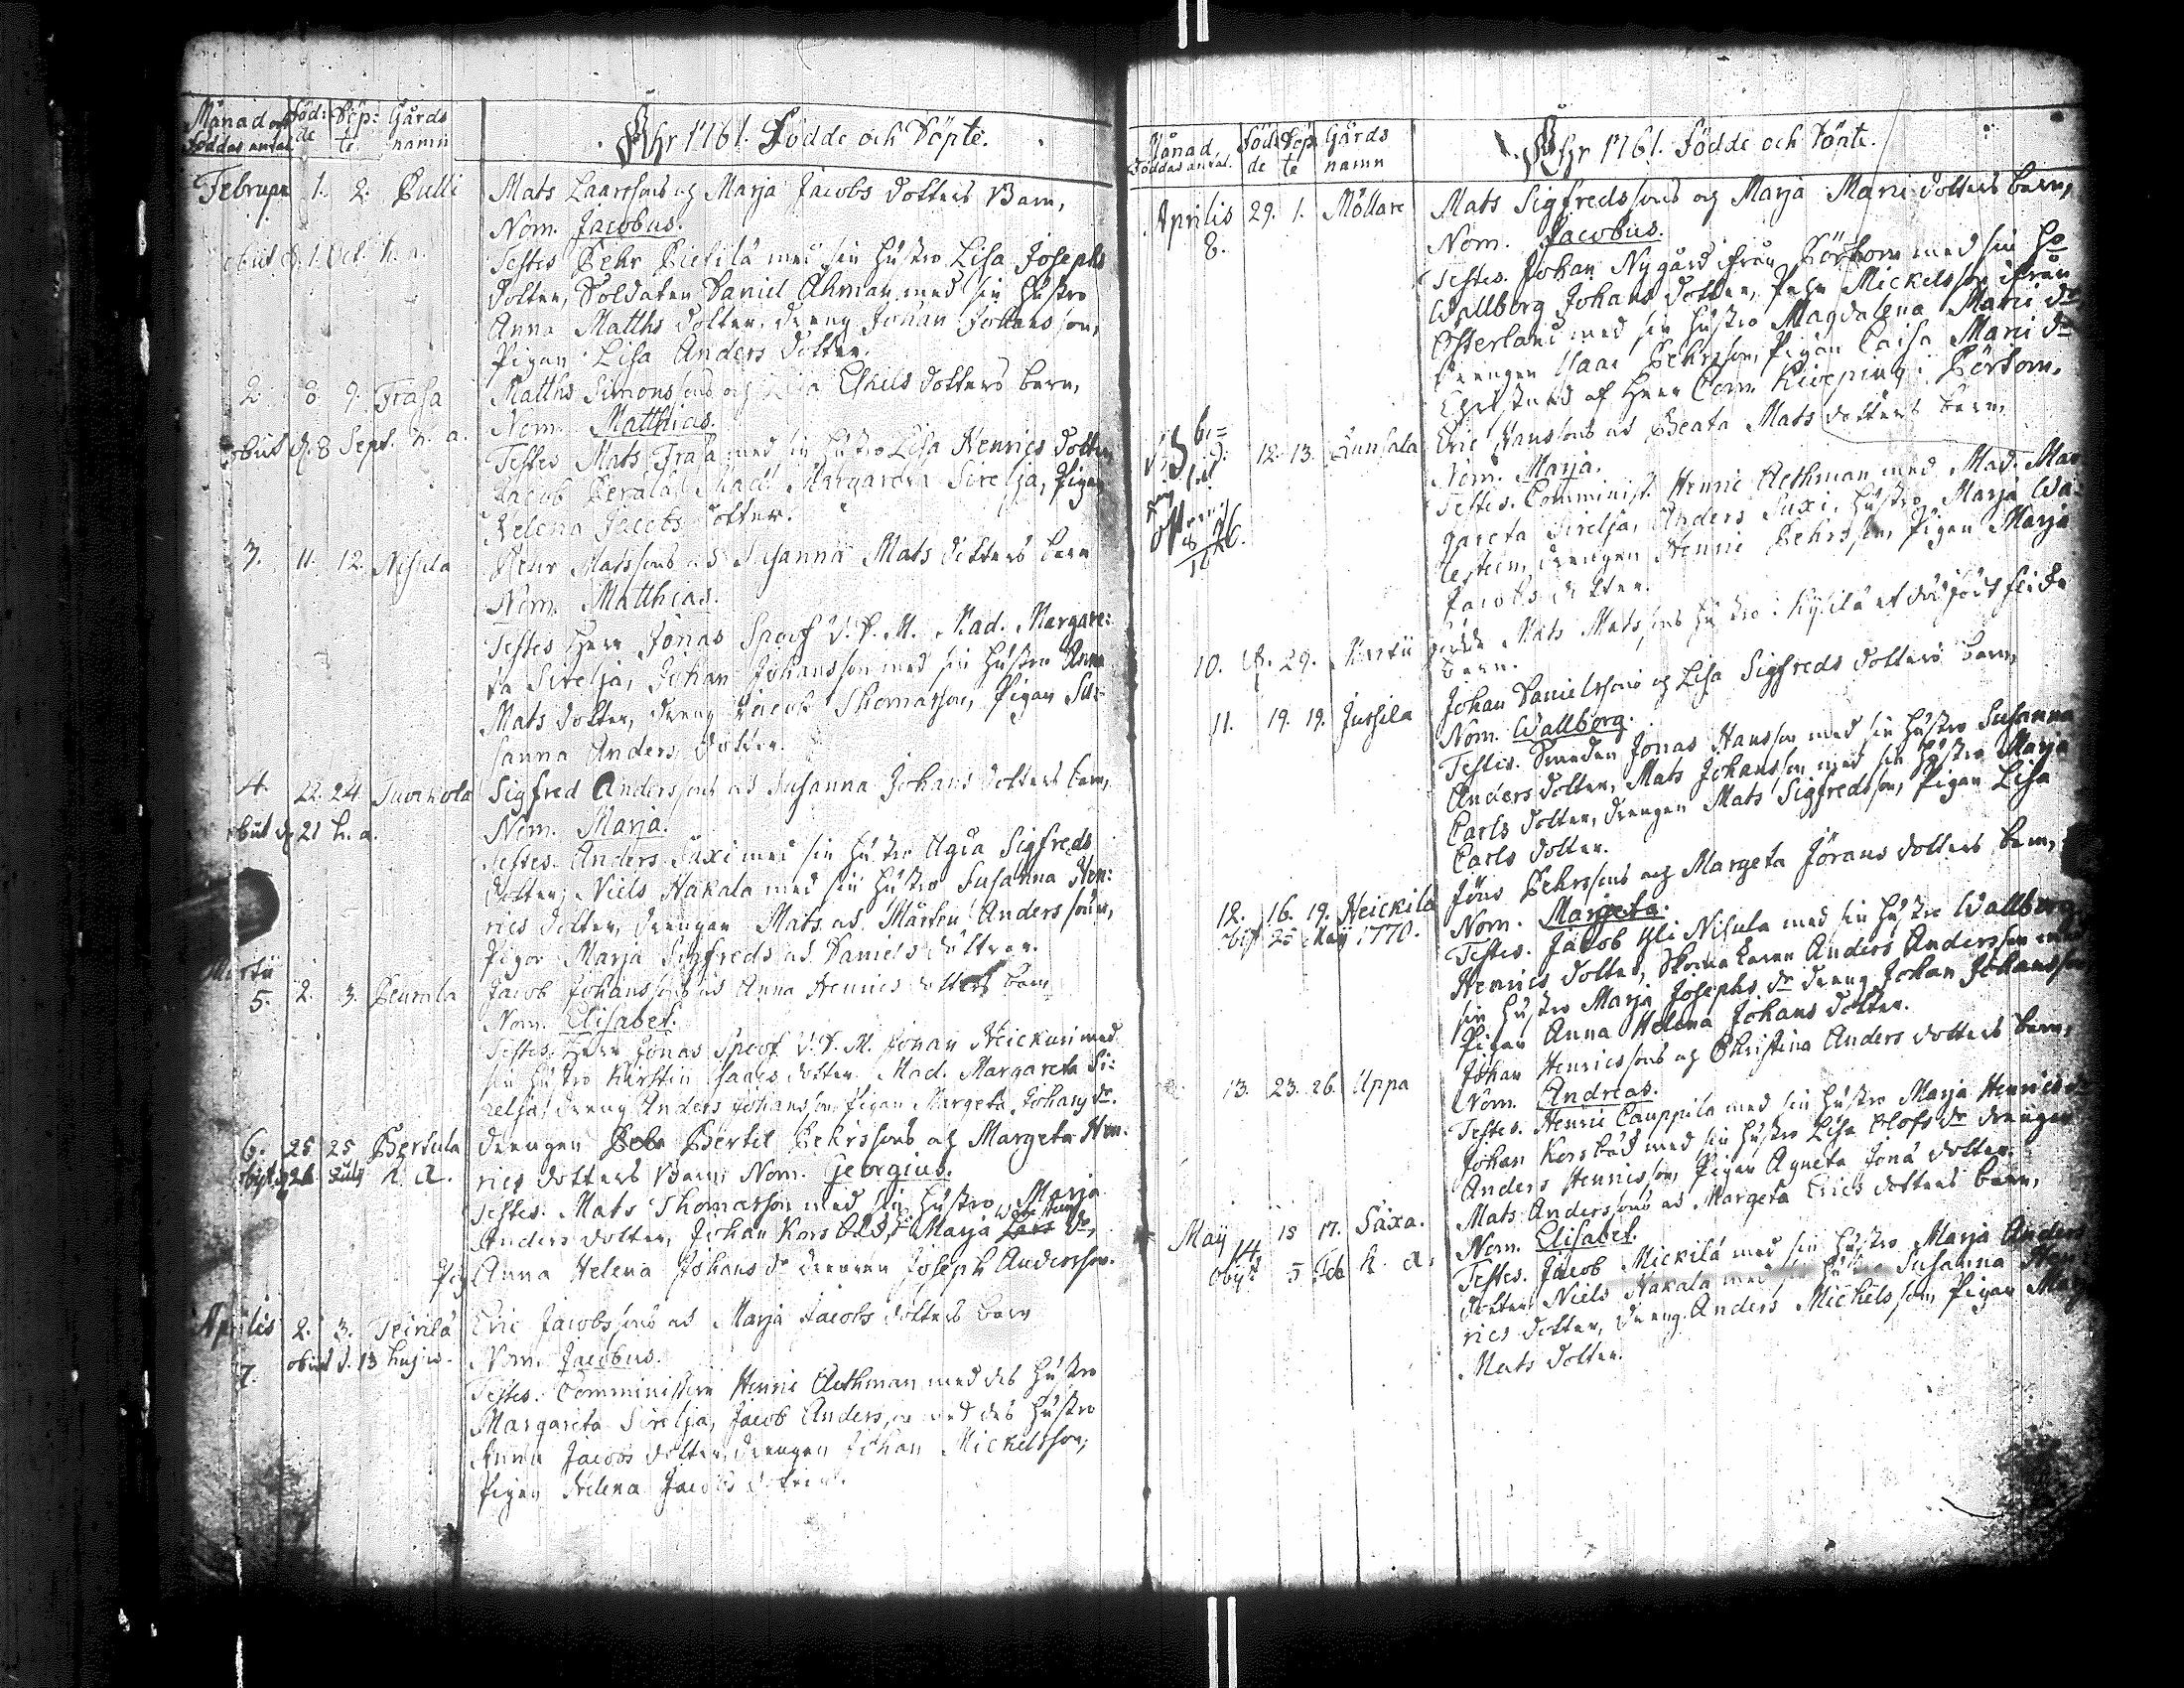 Månad och Föd: Döp: Gårds
Föddas antal de te namn
Åhr 1761. Födde och Döpte.
Februari 1. 2. Pulli Mats Laarssons och Marja Jacobs dotters Barn,
Nom. Jacobus.
obiit d. 1. Oct. h. a. Testes Pehr Pietilä med sin hustro Lisa Josephs
dotter, Soldaten Daniel Åhman med sin hustro
Anna Matths dotter, dreng Johan Johansson,
Pigan Lisa Anders dotter.
2. 8. 9. Frasa Matths Simonssons och Lisa Eskils dotters barn,
Nom. Matthias.
obiit d. 8 Sept. h. a. Testes Mats Frasa med sin hustro Lisa Henrics dotter,
Jacob Perala, Mad. Margareta Sirelja, Pigan
Helena Jacobs dotter.
3. 11. 12. Nisula Henr Matssons och Susanna Mats dotters barn
Nom. Matthias.
Testes Herr Jonas Spoof V. D. M. Mad. Margare:
ta Sirelja, Johan Johansson med sin hustro Anna
Mats dotter, dreng Jacob Thomasson, Pigan Su:
sanna Anders dotter.
4. 22. 24. Tuorkola Sigfred Anderssons och Susanna Johans dotters barn,
obiit d. 21 h. a. Nom. Marja.
Testes. Anders Saxi med sin hustro Agda Sigfreds
dotter, Niels Hakala med sin hustro Susanna Hen:
rics dotter, drengar Mats och Mårten Anderssöner,
Pigor Marja Sigfreds och Daniels döttrar.
Martii
5. 2. 3. Peurala Jacob Johanssons och Anna Henrics dotters barn
Nom. Elisabet.
Testes. Herr Jonas Spoof V. D. M. Johan Heickuri med
sin hustro Kirstin Isaacs dotter. Mad. Margareta Si:
relja, dreng Anders Johansson, Pigan Margeta Johans dr.
6. 25 25 Pertula drengen Pehr Bertil Pehrssons och Margeta Hen.
obijt d. 26 Julij h. a. rics dotters Barn, Nom. Georgius.
Testes. Mats Thomasson med sin hustro Marja
Anders dotter, Johan Korsbäck, Marja Lars dr,
Pig. Anna Helena Johans dr drengen Joseph Andersson.
Aprilis 2. 3. Peirilä Eric Jacobssons och Marja Jacobs dotters barn
7. obiit d. 13 hujus. Nom. Jacobus.
Testes. Comministern Henric Aethman med des hustro
Margareta Sirelja, Jacob Andersson med des hustro
Anna Jacobs dotter, drengen Johan Mickelsson,
Pigan Helena Jacobs dotter.
Månad Föd: Döp: Gårds
Föddas antal. de te namn
Åhr 1761. Födde och Döpte.
Aprilis 29. 1. Möllare Mats Sigfredssons och Marja Mari dotters barn,
8. Nom. Jacobus.
Testes. Johan Nygård ifrån Pörtom med sin Ho
Wallborg Johans dotter, Pehr Mickelsson ifrån
Österland med sin hustro Magdalena Mari dr
drengen Isaac Pehrsson, Pigan Caisa Mari dr
Christnad af Herr Com. Kweping i Pörtom.
9. 12. 13. Lunsala Eric Hanssons och Beata Mats dotters barn,
Nom. Marja.
Testes. Comminist. Henric Aethman med Mad. Mar
gareta Sirelja, Anders Saxi, hustro Marja Wa:
lestein, drengen Henric Pehrsson, Pigan Marja
Jacobs dotter.
10. 29. Martii födde Mats Matssons hustro i Kylilä et dödfödt flicke
barn.
11. 19. 19. Jussila Johan Danielssons och Lisa Sigfreds dotters barn,
Nom. Wallborg.
Testes. Smeden Jonas Hansson med sin hustro Susanna
Anders dotter, Mats Johansson med sin hustro Marja
Carls dotter, drengen Mats Sigfredsson, Pigan Lisa
Carls dotter.
12. 16. 19. Heickilä Jöns Pehrssons och Margeta Jörans dotters barn,
obijt 25 Maij 1770. Nom. Margeta.
Testes. Jacob Yli Nisula med sin hustro Wallborg
Henrics dotter, Skomakaren Anders Andersson med
sin hustro Marja Josephs dr dreng Johan Johansson,
Pigan Anna Helena Johans dotter.
13. 23. 26. Uppa Johan Henricssons och Christina Anders dotters barn,
Nom. Andreas.
Testes. Henric Cauppila med sin hustro Marja Henrics dr
Johan Korsbäck med sin hustro Lisa Olofs dr drengen
Anders Henricsson, Pigan Agneta Jona dotter.
Maij 15 17. Saxa. Mats Anderssons och Margeta Erics dotters barn,
14. Nom. Elisabet.
obijt 5 Feb h. a. Testes. Jacob Mickilä med sin hustro Marja Anders
dotter, Niels Hakala med sin hustro Susanna Hen
rics dotter, dreng Anders Michelsson, Pigan Marj
Mats dotter.